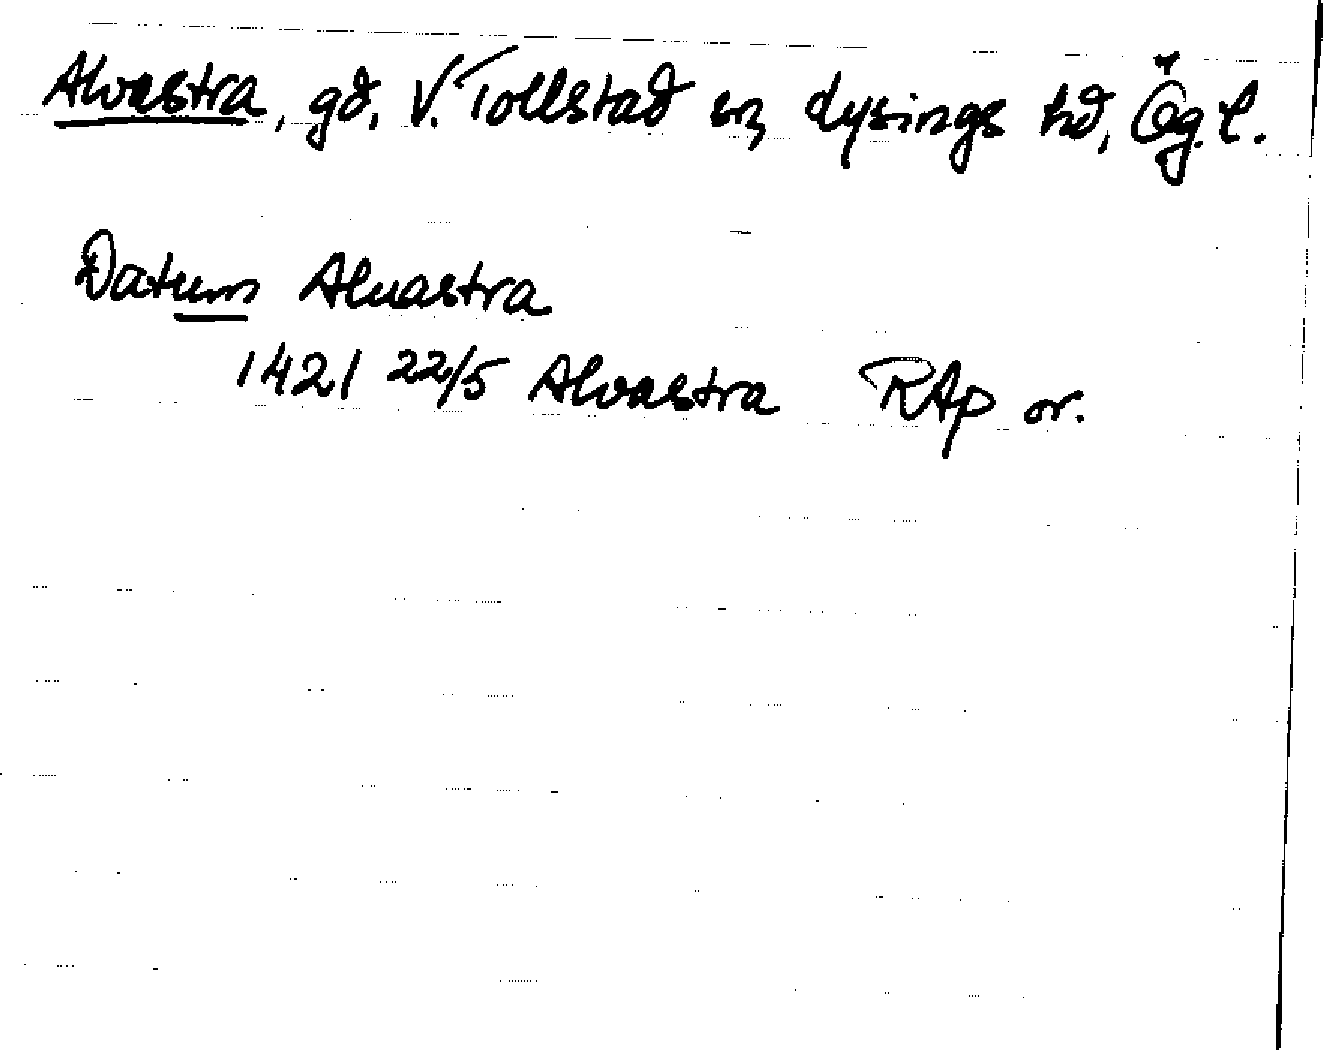 Alvastra, gd, V. Tollstad sn, Lysings hd, Ög. l.
Datum Aluastra
1421 22/5 Alvastra RAp or.